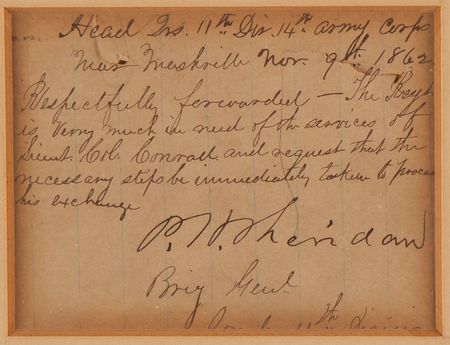 Head Qrs. 11th Div. 14th Army Corps
Near Nashville Nov. 9th 1862
Respectfully forwarded — The Regt
is very much in need of the services of
Lieut. Col. Conrad and request that the
necessary steps be immediately taken to procure
his exchange
P. H. Sheridan
Brig Genl
11th Division